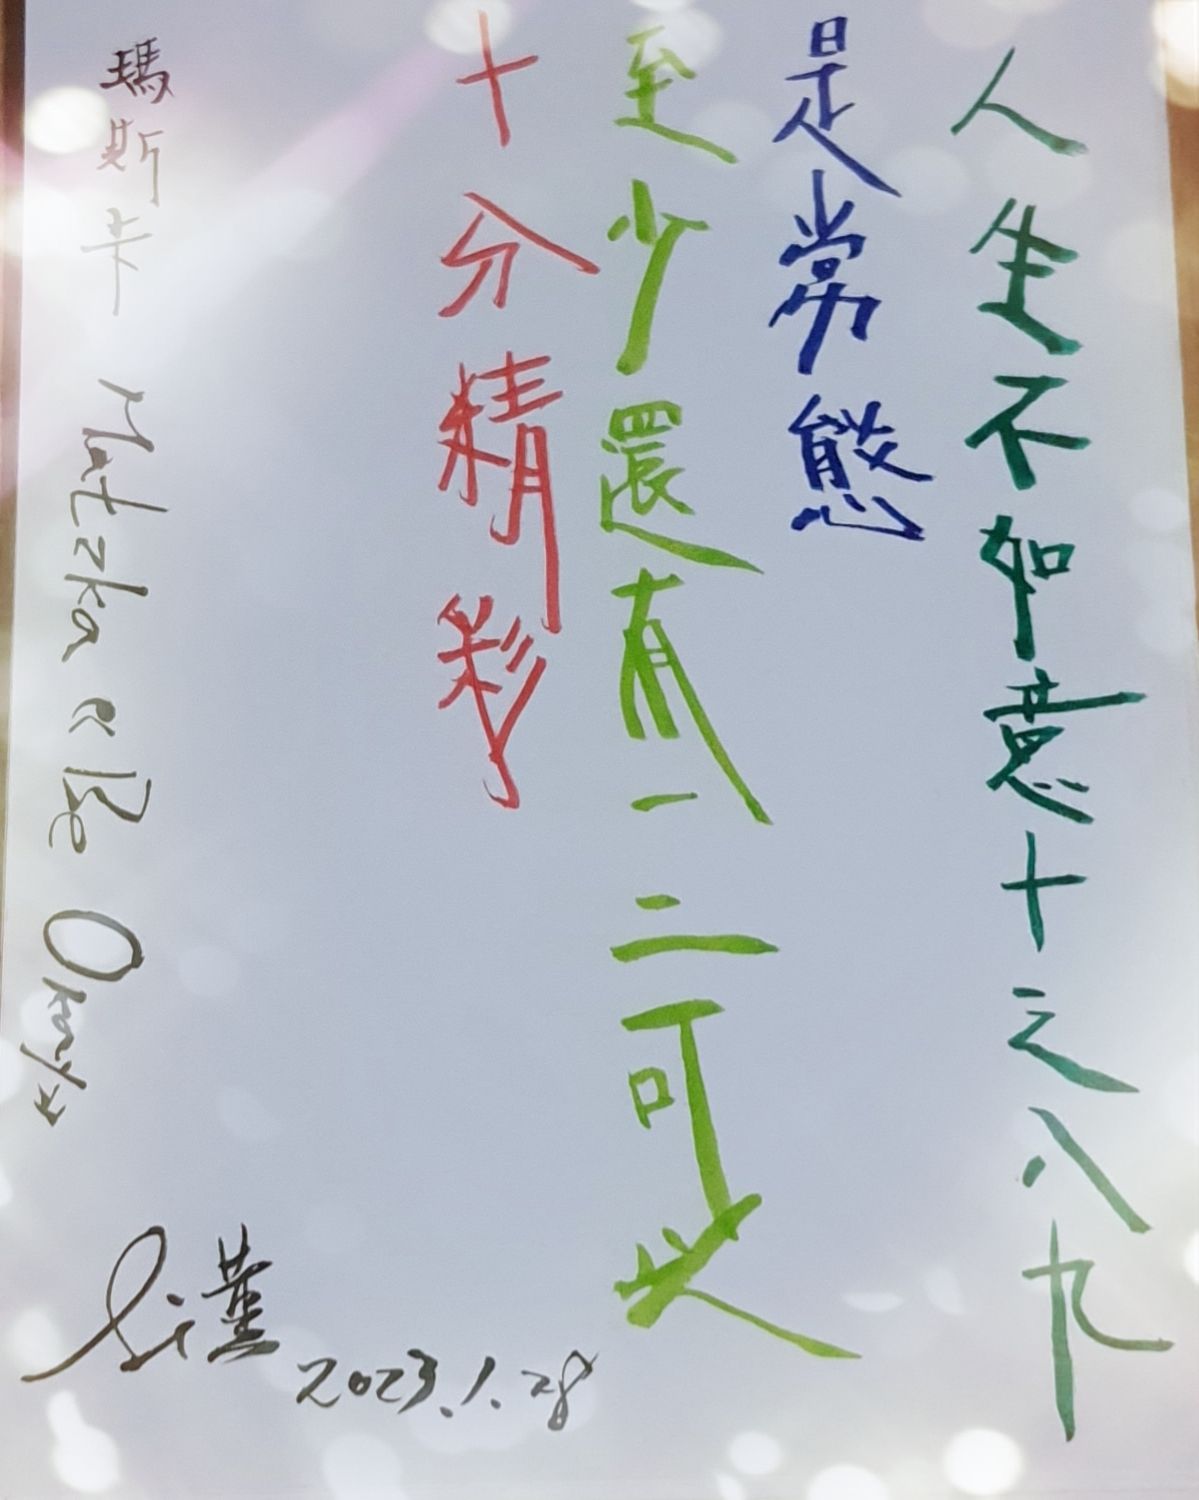 人生不如意十之八九
是常態
至少還有一二可以
十分精彩
瑪斯卡 Matzka《Be Okay》
2023.1.28